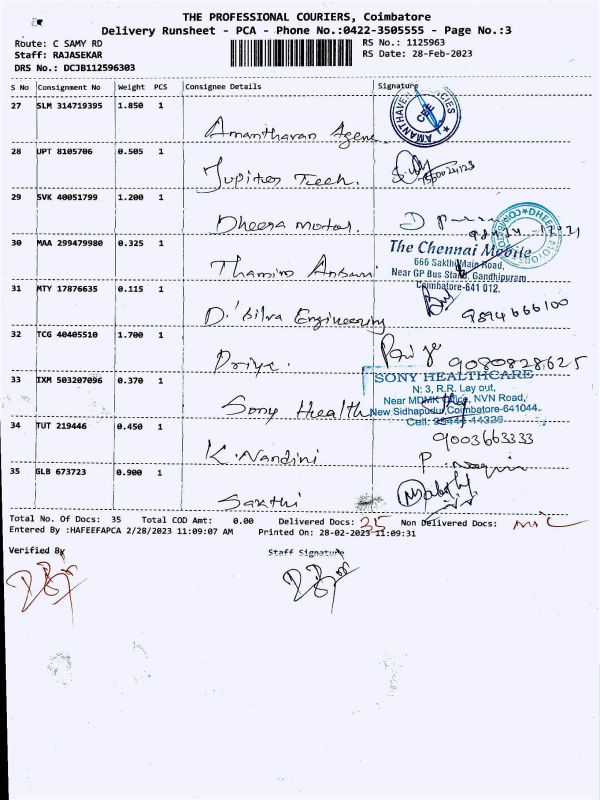 THE PROFESSIONAL COURIERS, Coimbatore
Delivery Runsheet - PCA - Phone No.:0422-3505555 - Page No.:3
Route: C SAMY RD RS No.: 1125963
Staff: RAJASEKAR RS Date: 28-Feb-2023
DRS No.: DCJB112596303
S No Consignment No Weight PCS Consignee Details Signature
27 SLM 314719395 1.850 1
Amantharan Agene
28 UPT 8105706 0.505 1
Jupiter Tech.
29 SVK 40051799 1.200 1
Dheera motors.
30 MAA 299479980 0.325 1
The Chennai Mobile
666 Sakthi Main Road,
Near GP Bus Stand, Gandhipuram
Coimbatore-641 012.
31 MTY 17876635 0.115 1
D.'Silva Engineering 9894666100
32 TCG 40405510 1.700 1
Priya. 9080828625
33 IXM 503207096 0.370 1
SONY HEALTHCARE
N: 3, R.R. Lay out,
Near MDMK Office, NVN Road,
New Sidhapudur, Coimbatore-641044.
Cell: 98444 44326
Sony Health
34 TUT 219446 0.450 1
9003663333
K. Nandini
35 GLB 673723 0.900 1
Sakthi
Total No. Of Docs: 35 Total COD Amt: 0.00 Delivered Docs: 35 Non Delivered Docs: Nil
Entered By :HAFEEFAPCA 2/28/2023 11:09:07 AM Printed On: 28-02-2023 11:09:31
Verified By Staff Signature